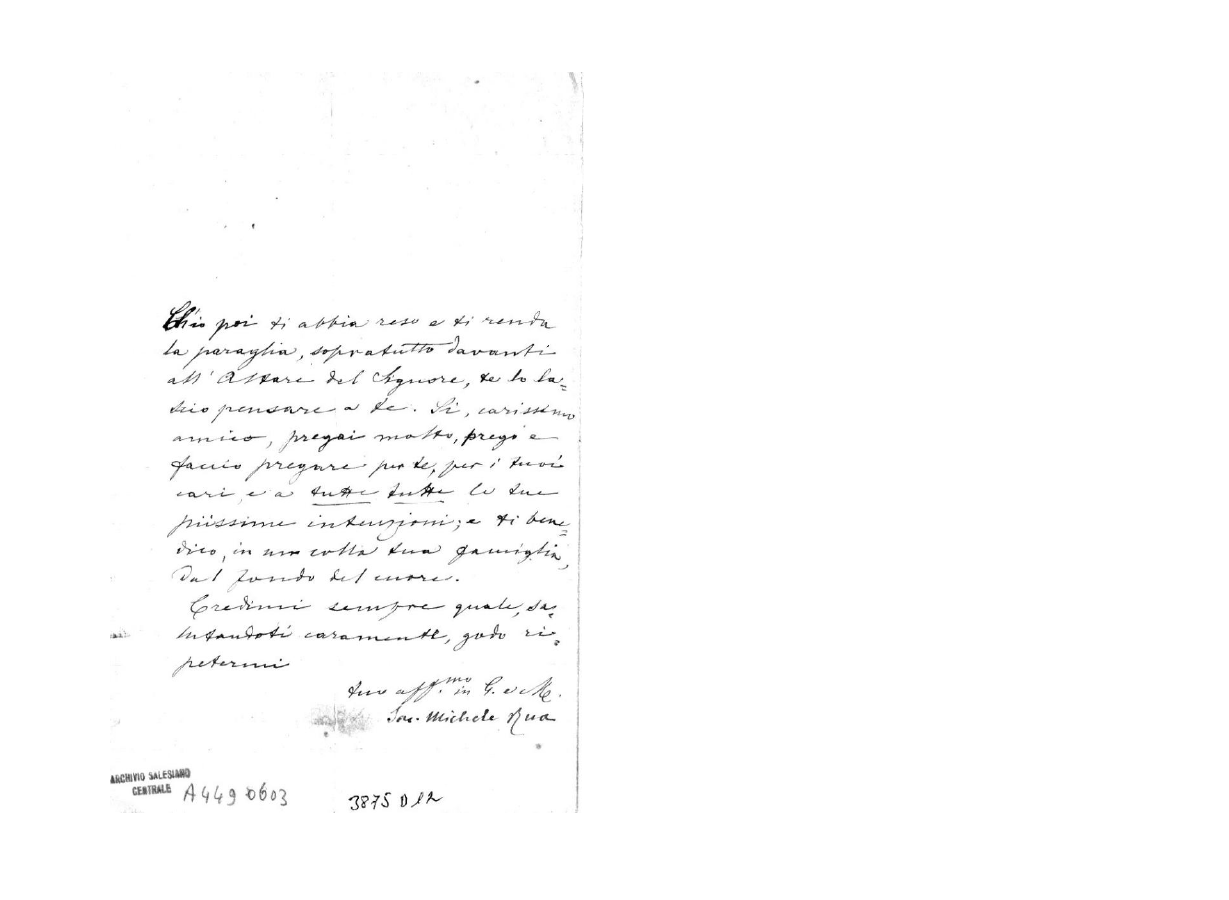 Ch'io poi ti abbia reso e ti renda
la paraglia, sopratutto davanti
all' Altare del Signore, te lo la=
scio pensare a te. Sì, carissimo
amico, pregai molto, prego e
faccio pregare per te, per i tuoi
cari, e a tutte tutte le tue
piissime intenzioni; e ti bene=
dico, in un colla tua famiglia,
dal fondo del cuore.
Credimi sempre quale, sa=
lutandoti caramente, godo ri=
petermi
tuo aff.mo in G. e M.
Sac. Michele Rua
ARCHIVIO SALESIANO
CENTRALE
A449 0603
3875 D 12